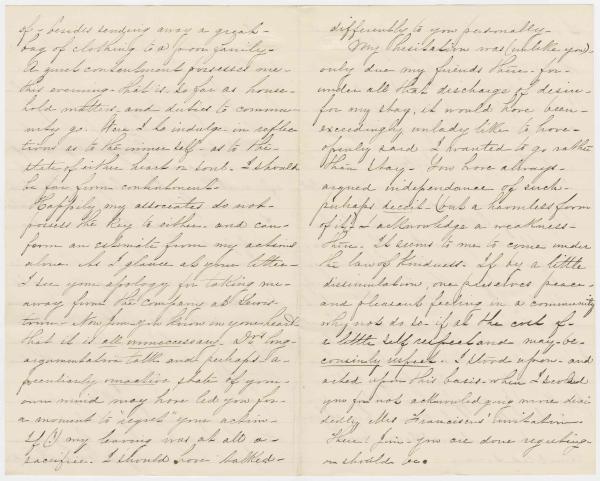 of - besides sending away a great -
bag of clothing to a poor family -
A quiet contentment possesses me -
this evening - that is so far as house -
hold matters, and duties to commu -
nity go. Were I to indulge in reflec -
tions as to the inner self - as to the -
state of either heart or soul. I should
be far from contentment -
Happily my associates do not -
possess the key to either - and can -
form an estimate from my actions
alone. As I glance at your letter -
I see your apology for taking me -
away from the company at Lewis -
town - Now Jim you know in your heart
that it is all unnecessary. Drs long -
argumentative talk and perhaps a -
peculiarly state of your -
own mind may have led you for -
a moment to "regret" your action -
If (?) my leaving was at all a -
sacrifice. I should have balked -
differently to you personally -
My hesitation was (unlike you) -
only due my friends there - for -
under all that discharge of desire -
for my stay, it would have been -
exceedingly unlady like to have -
openly said I wanted to go rather
than stay - You have always -
argued independance of such -
perhaps deceit - (but a harmless form
of it) - I acknowledge a weakness -
there. It seems to me to come under
the law of kindness. If by a little
dissimulation, one preserves peace -
and pleasant feeling in a community
why not do so - if at the cost of -
a little self respect and may - be -
cousinly respect. I stood upon - and
acted upon this basis - when I scolded
you for not acknowledging more deci
dedly Mrs Franciscus' invitation -
There! Jim - you are done regretting -
or should be.